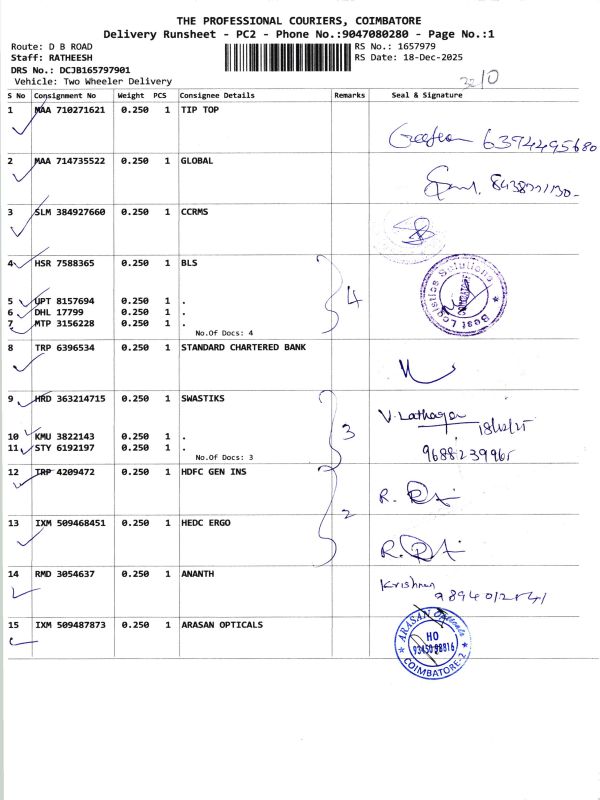 THE PROFESSIONAL COURIERS, COIMBATORE
Delivery Runsheet - PC2 - Phone No.:9047080280 - Page No.:1
Route: D B ROAD RS No.: 1657979
Staff: RATHEESH RS Date: 18-Dec-2025
DRS No.: DCJB165797901
Vehicle: Two Wheeler Delivery
S No Consignment No Weight PCS Consignee Details Remarks Seal & Signature
1 MAA 710271621 0.250 1 TIP TOP
6374495680
2 MAA 714735522 0.250 1 GLOBAL
3 SLM 384927660 0.250 1 CCRMS
4 HSR 7588365 0.250 1 BLS
4
Best Logistics Solutions
COIMBATORE
5 UPT 8157694 0.250 1 .
6 DHL 17799 0.250 1 .
7 MTP 3156228 0.250 1 .
No.Of Docs: 4
8 TRP 6396534 0.250 1 STANDARD CHARTERED BANK
9 HRD 363214715 0.250 1 SWASTIKS
18/12/25
3
10 KMU 3822143 0.250 1 .
9688239965
11 STY 6192197 0.250 1 .
No.Of Docs: 3
12 TRP 4209472 0.250 1 HDFC GEN INS
2
13 IXM 509468451 0.250 1 HEDC ERGO
14 RMD 3054637 0.250 1 ANANTH
Krishnan
15 IXM 509487873 0.250 1 ARASAN OPTICALS
ARASAN Opticals
HO
COIMBATORE-2